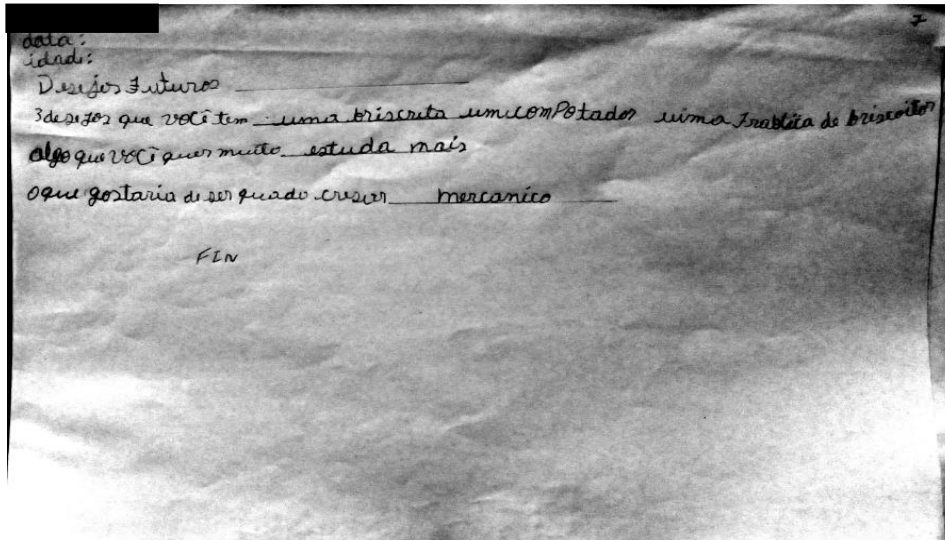 7
data:
idade:
Desejos Futuros
3 desejos que você tem uma briscreta um compotador uima frablica de briscoitor
algo que você quer muito estuda mais
o que gostaria de ser quado crescer mercanico
FIN